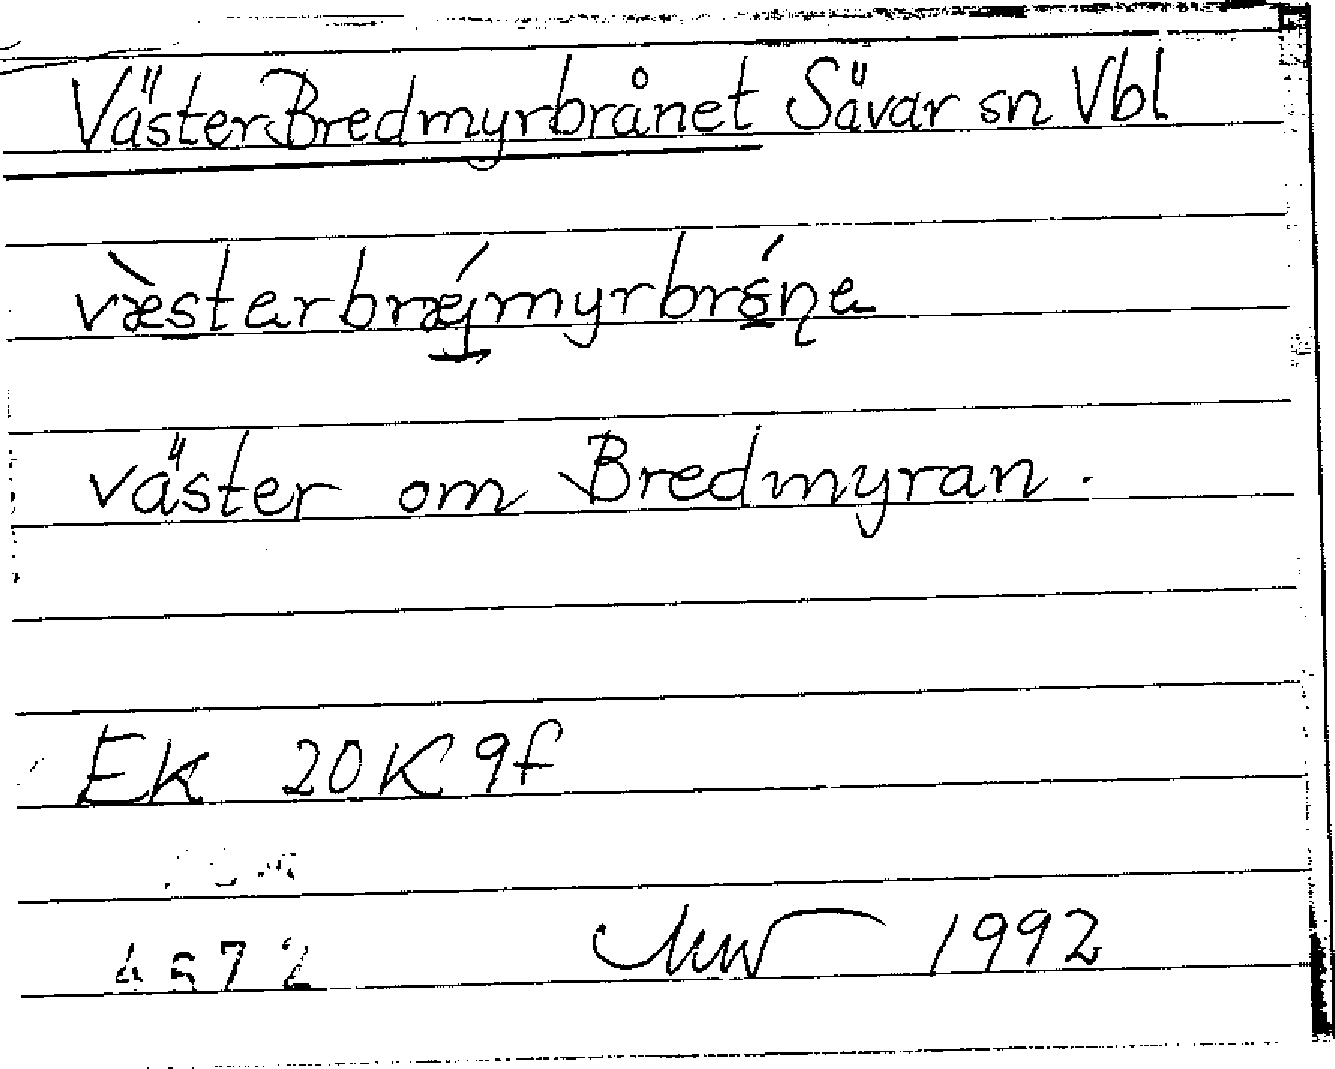 VästerBredmyrbrånet Sävar sn Vbl
væ̀sterbrǽjmyrbrǿne
väster om Bredmyran.
Ek 20K 9f
1992